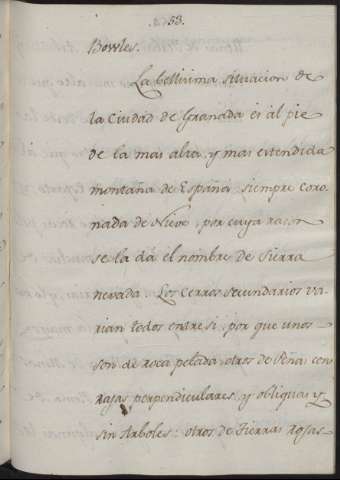 53.
Bowles.
La bellisima situacion de
la Ciudad de Granada es al pie
de la mas alta, y mas extendida
montaña de España siempre coro-
nada de Nieve, por cuya razon
se la dá el nombre de Sierra
nevada. Los Cerros secundarios va-
rian todos entre si, por que unos
son de roca pelada, otros de Peña con
rajas perpendiculares, y obliquas y
sin Arboles: otros de Tierras rojas